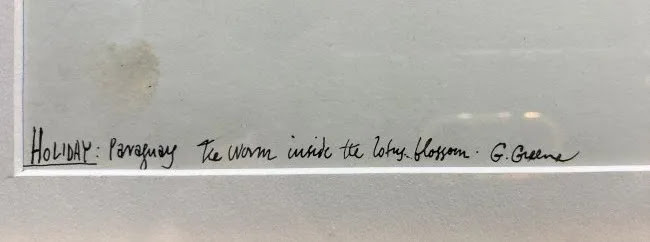 HOLIDAY: Paraguay The worm inside the lotus blossom. G. Greene